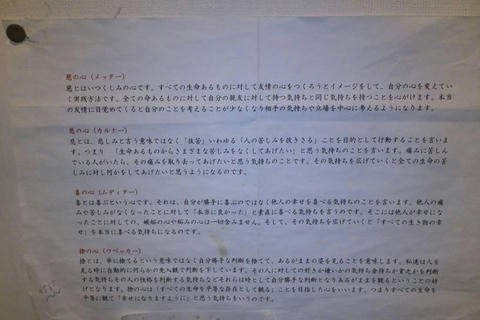 慈の心(メッター)
慈とはいつくしみの心です。すべての生命あるものに対して友情の心をつくろうとイメージをして、自分の心を変えてい
く実践方法です。全ての命あるものに対して自分の親友に対して持つ気持ちと同じ気持ちを持つことを心がけます。本当
の友情に目覚めてくると自分のことを考えることが少なくなり相手の気持ちや立場を中心に考るようになります。
悲の心(カルナー)
悲とは、悲しみと言う意味ではなく「抜苦」いわゆる「人の苦しみを抜きさる」ことを目的として行動することを言いま
す。つまり「生命あるものからさまざまな苦しみをなくしてあげたい」と思う気持ちのことを言います。痛みに苦しん
でいる人がいたら、その痛みを取り去ってあげたいと思う気持ちのことです。その気持を広げていくと全ての生命の苦
しみに対し何かをしてあげたいと思うようになるのです。
喜の心(ムディター)
喜とは喜ぶという心です。それは、自分が勝手に喜ぶのではなく他人の幸せを喜べる気持ちのことを言います。他人の痛
みや苦しみがなくなったことに対して「本当に良かった」と素直に喜べる気持ちを言うのです。そこには他人が幸せにな
ったことに対しての、嫉妬の心や妬みの心は一切含みません。そして、その気持を広げていくと「すべての生き物の幸
せ」を本当に喜べる気持ちになるのです。
捨の心(ウペッカー)
捨とは、単に捨てるという意味ではなく自分勝手な判断を捨てて、あるがままの姿を見ることを意味します。私達は人を
見る時に自動的に何らかの先入観で判断を下しています。その人に対しての好きか嫌いかの気持ち金持ちか貧乏かを判断
する気持ちその人の性格を判断する気持などそれらは時として自分勝手な判断となりあるがままを観るということの妨
げとなります。捨の心は「すべての生命を平等な存在として観る」ことを目指した心をいいます。つまりすべての生命を
平等に観て「幸せになりますように」と思う気持ちをいうのです。